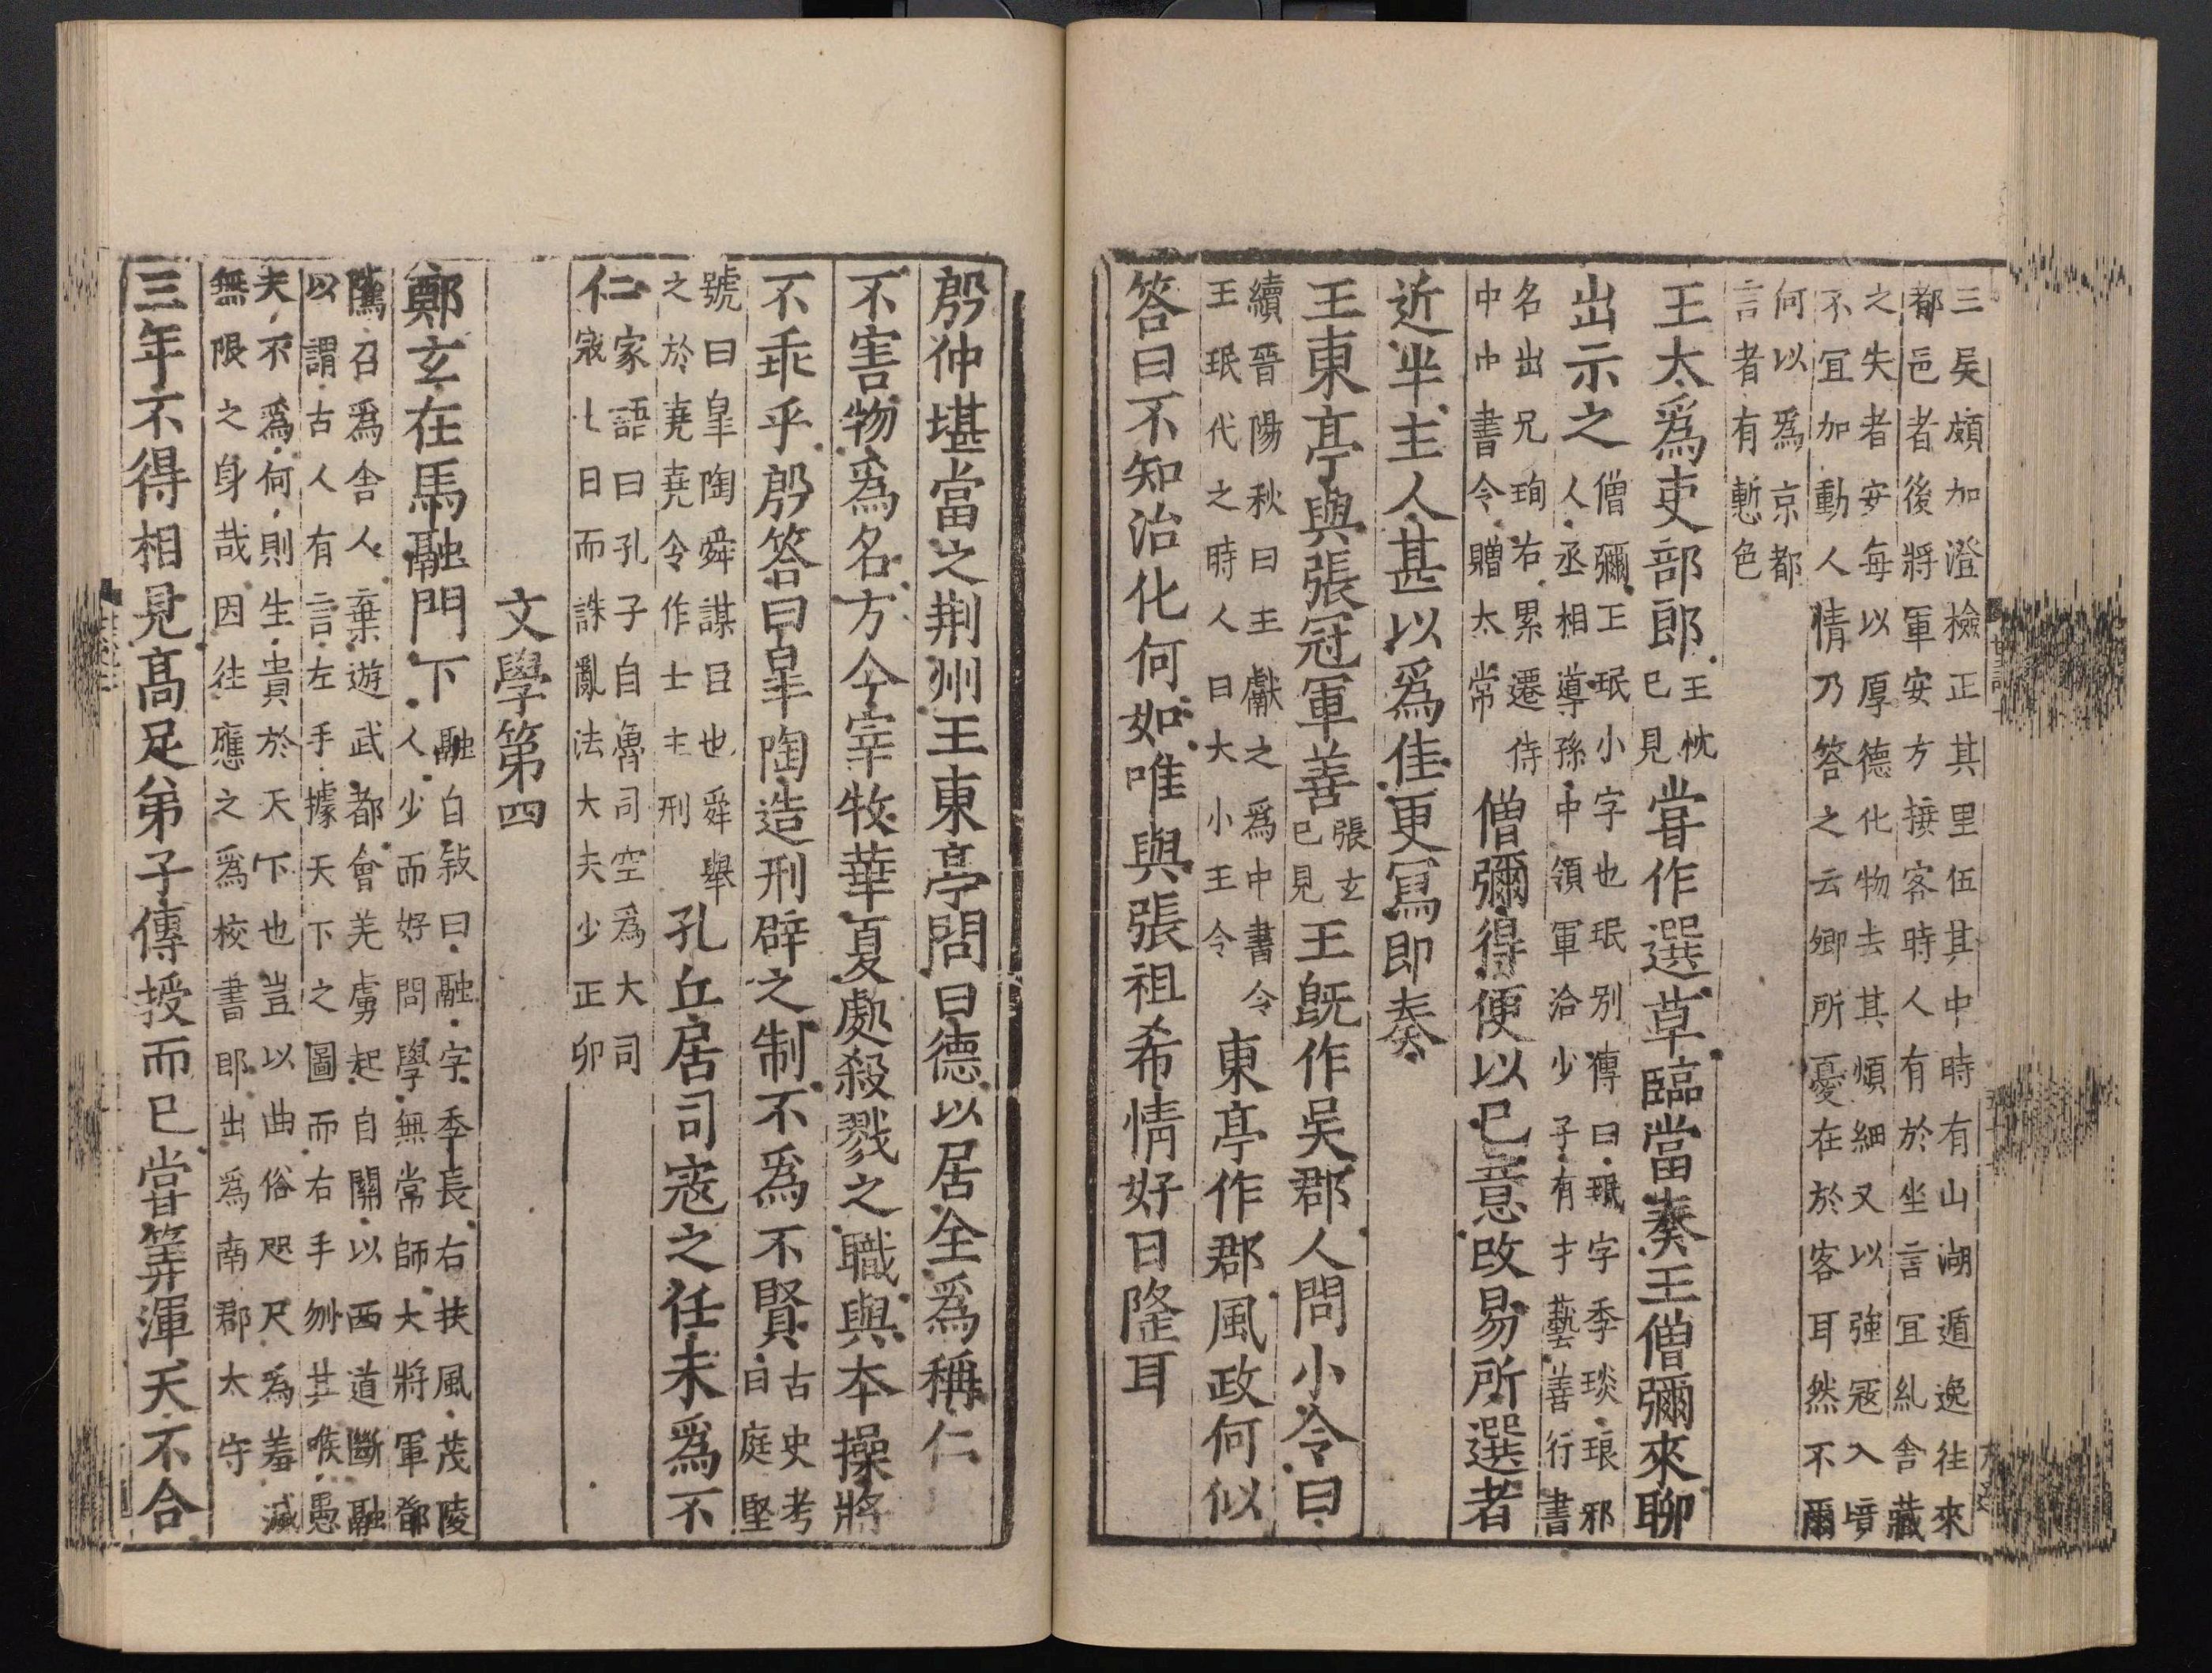 三吳頗加澄檢正其里伍其中時有山湖遁逸往來
都邑者後將軍安方接客時人有於坐言宜糺舍藏
之失者安每以厚德化物去其煩細又以強寇入境
不宜加動人情乃答之云卿所憂在於客耳然不爾
何以爲京都
言者有慙色
王大爲吏部郎
王忱
已見
嘗作選草臨當奏王僧彌來聊
出示之
僧彌王珉小字也珉別傳曰珉字季琰琅邪
人丞相導孫中領軍洽少子有才藝善行書
名出兄珣右累遷侍
中中書令贈太常
僧彌得便以己意改易所選者
近半主人甚以爲佳更寫即奏
王東亭與張冠軍善
張玄
已見
王既作吳郡人問小令曰
續晉陽秋曰王獻之爲中書令
王珉代之時人曰大小王令
東亭作郡風政何似
答曰不知治化何如唯與張祖希情好日隆耳
殷仲堪當之荆州王東亭問曰德以居全爲稱仁
不害物爲名方今宰牧華夏處殺戮之職與本操將
不乖乎殷答曰皐陶造刑辟之制不爲不賢
古史考
白庭堅
號曰皐陶舜謀臣也舜舉
之於堯堯令作士主刑
孔丘居司寇之任未爲不
仁
家語曰孔子自魯司空爲大司
寇七日而誅亂法大夫少正卯
文學第四
鄭玄在馬融門下
融自敍曰融字季長右扶風茂陵
人少而好問學無常師大將軍鄧
隲召爲舎人棄遊武都會羌虜起自關以西道斷融
以謂古人有言左手據天下之圖而右手刎其喉愚
夫不爲何則生貴於天下也豈以曲俗咫尺爲羞滅
無限之身哉因往應之爲校書郎出爲南郡太守
三年不得相見高足弟子傳授而已嘗筭渾天不合